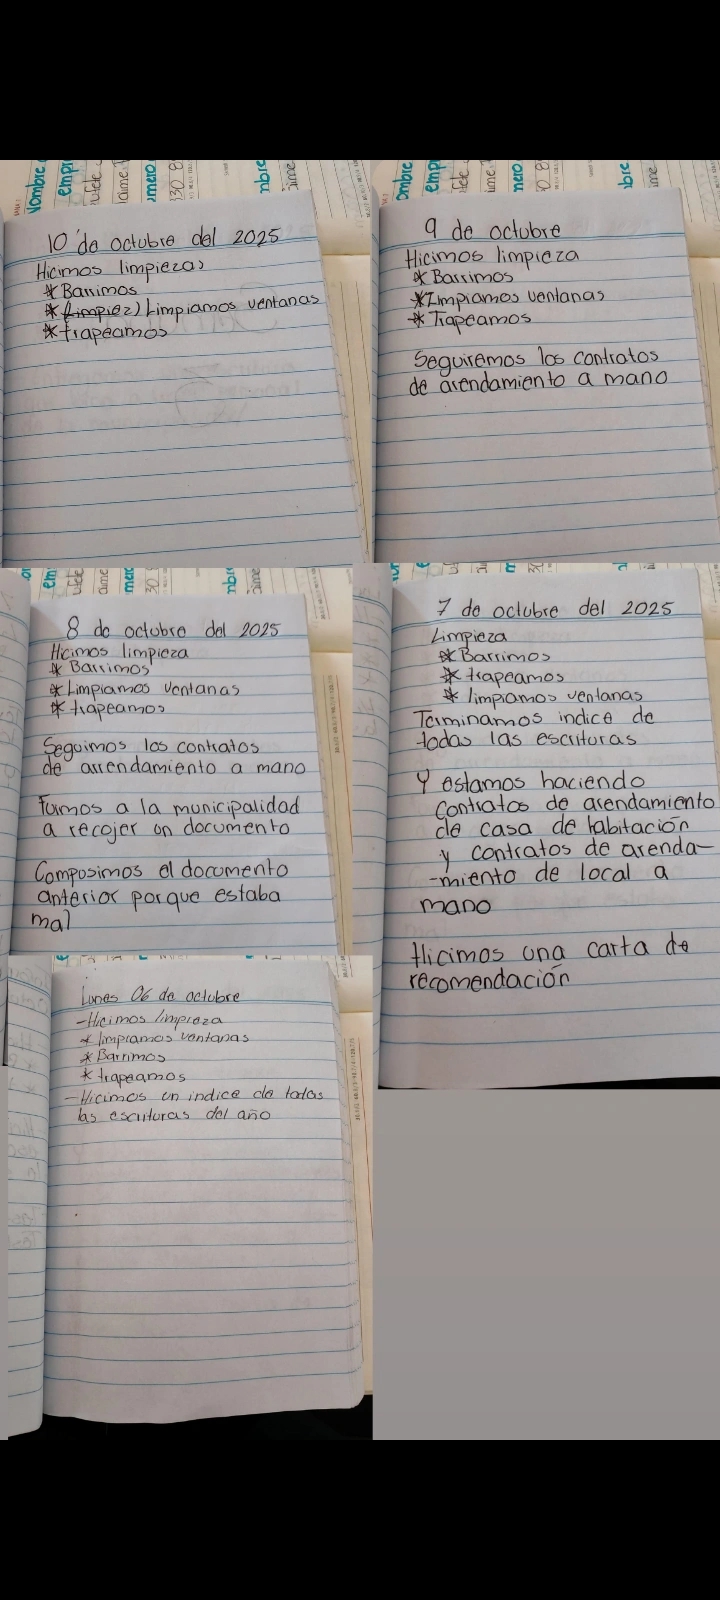 10 de octubre del 2025
Hicimos limpiezas
* Barrimos
* Limpiamos ventanas
* trapeamos
9 de octubre
Hicimos limpieza
* Barrimos
* Limpiamos ventanas
* Trapeamos
Seguiremos los contratos
de arendamiento a mano
8 de octubre del 2025
Hicimos limpieza
* Barrimos
* Limpiamos ventanas
* trapeamos
Seguimos los contratos
de arrendamiento a mano
Fuimos a la municipalidad
a recojer un documento
Composimos el documento
anterior porque estaba
mal
7 de octubre del 2025
Limpieza
* Barrimos
* trapeamos
* limpiamos ventanas
Terminamos indice de
todas las escrituras
Y estamos haciendo
contratos de arendamiento
de casa de habitación
y contratos de arenda-
-miento de local a
mano
Hicimos una carta de
recomendación
Lunes 06 de octubre
- Hicimos limpieza
* limpiamos ventanas
* Barrimos
* trapeamos
- Hicimos un indice de todas
las escrituras del año